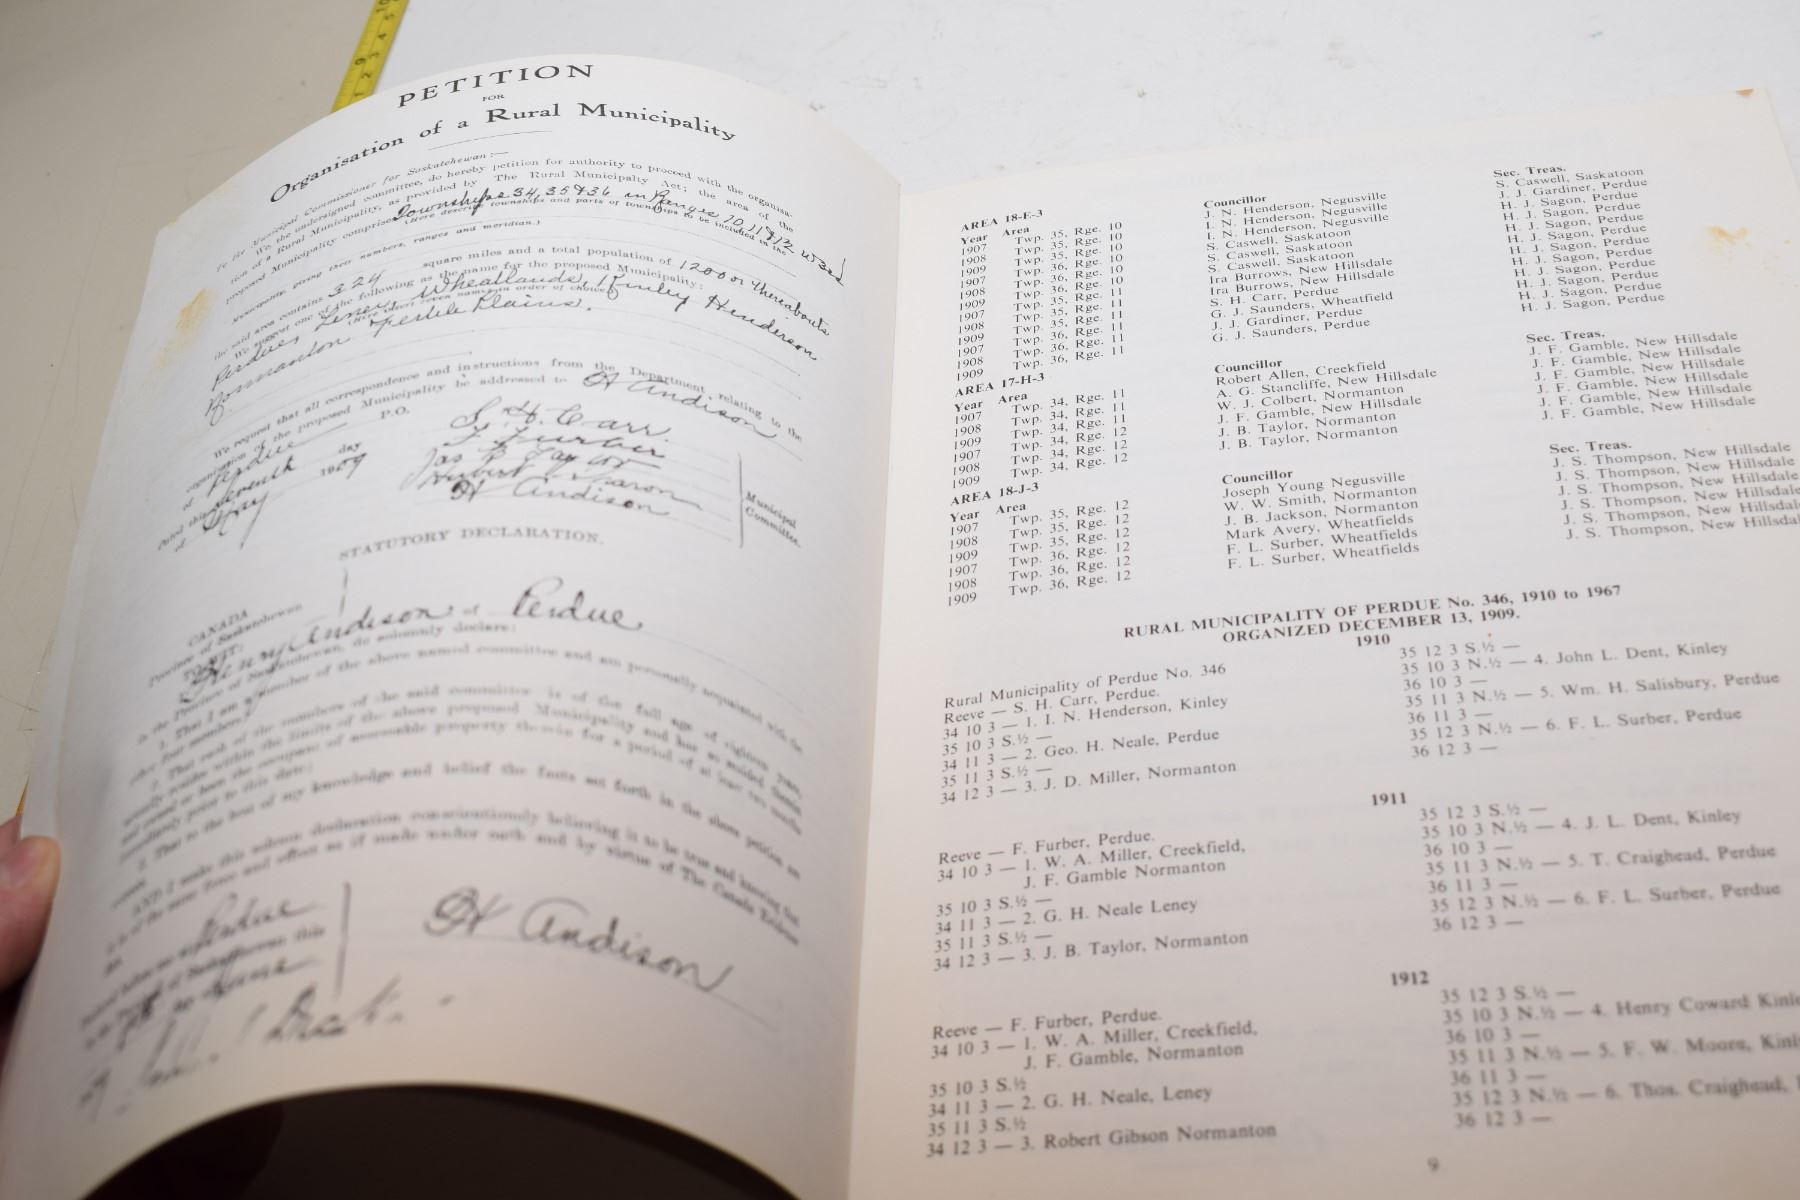 PETITION
FOR
Organisation of a Rural Municipality
To the Municipal Commissioner for Saskatchewan:—
We, the undersigned committee, do hereby petition for authority to proceed with the organisa-
tion of a Rural Municipality, as provided by The Rural Municipality Act; the area of the
proposed Municipality comprises Townships 34, 35 & 36 in Ranges 10, 11 & 12 W 3rd
(Here describe townships and parts of townships to be included in the
Municipality, giving their numbers, ranges and meridian.)
the said area contains 324 square miles and a total population of 1200 or thereabouts
We suggest one of the following as the name for the proposed Municipality:
Perdue, Leney, Wheatlands, Kinley Henderson
(Here give names in order of choice)
Normanton Fertile Plains.
We request that all correspondence and instructions from the Department relating to the
organisation of the proposed Municipality be addressed to H Andison
Perdue P.O.
Dated this seventh day
of May 1909
S. H. Carr.
F Furber
Jas B Taylor
H Andison
Municipal Committee.
STATUTORY DECLARATION.
CANADA
Province of Saskatchewan
TO WIT:
I Henry Andison of Perdue
in the Province of Saskatchewan, do solemnly declare:
1. That I am a member of the above named committee and am personally acquainted with the
other four members.
2. That each of the members of the said committee is of the full age of eighteen years,
actually resides within the limits of the above proposed Municipality and has so resided
immediately prior to this date;
3. That to the best of my knowledge and belief the facts set forth in the above petition are
correct.
AND I make this solemn declaration conscientiously believing it to be true and knowing that
it is of the same force and effect as if made under oath and by virtue of The Canada Evidence
Act.
Perdue
H Andison
AREA 18-E-3
Year Area Councillor Sec. Treas.
1907 Twp. 35, Rge. 10 J. N. Henderson, Negusville S. Caswell, Saskatoon
1908 Twp. 35, Rge. 10 I. N. Henderson, Negusville J. J. Gardiner, Perdue
1909 Twp. 35, Rge. 10 I. N. Henderson, Negusville H. J. Sagon, Perdue
1907 Twp. 36, Rge. 10 S. Caswell, Saskatoon H. J. Sagon, Perdue
1908 Twp. 36, Rge. 10 S. Caswell, Saskatoon H. J. Sagon, Perdue
1909 Twp. 36, Rge. 10 S. Caswell, Saskatoon H. J. Sagon, Perdue
1907 Twp. 35, Rge. 11 Ira Burrows, New Hillsdale H. J. Sagon, Perdue
1908 Twp. 35, Rge. 11 Ira Burrows, New Hillsdale H. J. Sagon, Perdue
1909 Twp. 35, Rge. 11 S. H. Carr, Perdue H. J. Sagon, Perdue
1907 Twp. 36, Rge. 11 G. J. Saunders, Wheatfield H. J. Sagon, Perdue
1908 Twp. 36, Rge. 11 J. J. Gardiner, Perdue H. J. Sagon, Perdue
1909 Twp. 36, Rge. 11 G. J. Saunders, Perdue
AREA 17-H-3
Year Area Councillor Sec. Treas.
1907 Twp. 34, Rge. 11 Robert Allen, Creekfield J. F. Gamble, New Hillsdale
1908 Twp. 34, Rge. 11 A. G. Stancliffe, New Hillsdale J. F. Gamble, New Hillsdale
1909 Twp. 34, Rge. 11 W. J. Colbert, Normanton J. F. Gamble, New Hillsdale
1907 Twp. 34, Rge. 12 J. F. Gamble, New Hillsdale J. F. Gamble, New Hillsdale
1908 Twp. 34, Rge. 12 J. B. Taylor, Normanton J. F. Gamble, New Hillsdale
1909 Twp. 34, Rge. 12 J. B. Taylor, Normanton J. F. Gamble, New Hillsdale
AREA 18-J-3
Year Area Councillor Sec. Treas.
1907 Twp. 35, Rge. 12 Joseph Young Negusville J. S. Thompson, New Hillsdale
1908 Twp. 35, Rge. 12 W. W. Smith, Normanton J. S. Thompson, New Hillsdale
1909 Twp. 35, Rge. 12 J. B. Jackson, Normanton J. S. Thompson, New Hillsdale
1907 Twp. 36, Rge. 12 Mark Avery, Wheatfields J. S. Thompson, New Hillsdale
1908 Twp. 36, Rge. 12 F. L. Surber, Wheatfields J. S. Thompson, New Hillsdale
1909 Twp. 36, Rge. 12 F. L. Surber, Wheatfields J. S. Thompson, New Hillsdal
RURAL MUNICIPALITY OF PERDUE No. 346, 1910 to 1967
ORGANIZED DECEMBER 13, 1909.
1910
Rural Municipality of Perdue No. 346
Reeve — S. H. Carr, Perdue.
34 10 3 — 1. I. N. Henderson, Kinley
35 10 3 S.½ —
34 11 3 — 2. Geo. H. Neale, Perdue
35 11 3 S.½ —
34 12 3 — 3. J. D. Miller, Normanton
35 12 3 S.½ —
35 10 3 N.½ — 4. John L. Dent, Kinley
36 10 3 —
35 11 3 N.½ — 5. Wm. H. Salisbury, Perdue
36 11 3 —
35 12 3 N.½ — 6. F. L. Surber, Perdue
36 12 3 —
1911
Reeve — F. Furber, Perdue.
34 10 3 — 1. W. A. Miller, Creekfield,
J. F. Gamble Normanton
35 10 3 S.½ —
34 11 3 — 2. G. H. Neale Leney
35 11 3 S.½ —
34 12 3 — 3. J. B. Taylor, Normanton
35 12 3 S.½ —
35 10 3 N.½ — 4. J. L. Dent, Kinley
36 10 3 —
35 11 3 N.½ — 5. T. Craighead, Perdue
36 11 3 —
35 12 3 N.½ — 6. F. L. Surber, Perdue
36 12 3 —
1912
Reeve — F. Furber, Perdue.
34 10 3 — 1. W. A. Miller, Creekfield,
J. F. Gamble, Normanton
35 10 3 S.½
34 11 3 — 2. G. H. Neale, Leney
35 11 3 S.½
34 12 3 — 3. Robert Gibson Normanton
35 12 3 S.½ —
35 10 3 N.½ — 4. Henry Coward Kinl
36 10 3 —
35 11 3 N.½ — 5. F. W. Moore, Kinl
36 11 3 —
35 12 3 N.½ — 6. Thos. Craighead,
36 12 3 —
9